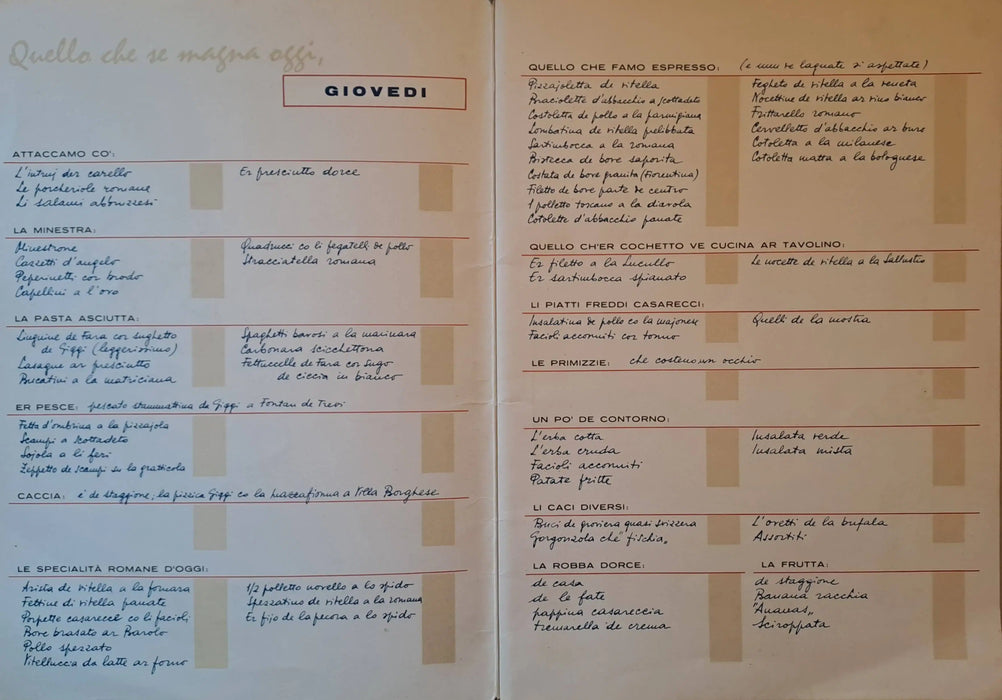 Quello che se magna oggi,
GIOVEDI
ATTACCAMO CO':
L'intruj der carello
Le porcheriole romane
Li salami abbruzzesi
Er presciutto dorce
LA MINESTRA:
Minestrone
Cazzetti d'angelo
Peperinetti cor brodo
Capellini a l'ovo
Quadrucci co li fegatelli de pollo
Stracciatella romana
LA PASTA ASCIUTTA:
Linguine de Fara cor sughetto
de Giggi (leggerissimo)
Lasagne ar presciutto
Bucatini a la matriciana
Spaghetti barosi a la marinara
Carbonara scicchettona
Fettuccelle de Fara cor sugo
de ciccia in bianco
ER PESCE: pescato stammattina da Giggi a Fontan de Trevi
Fetta d'ombrina a la pizzajola
Scampi a scottadeto
Sojola a li feri
Zeppetto de scampi su la graticola
CACCIA: è de staggione, la pizzica Giggi co la mazzafionna a Villa Borghese
LE SPECIALITÀ ROMANE D'OGGI:
Arista de vitella a la fornara
Fettine di vitella panate
Porpette casarecce co li facioli
Bove brasato ar Barolo
Pollo spezzato
Vitelluccia da latte ar forno
1/2 polletto novello a lo spido
Spezzatino de vitella a la romana
Er fijo de la pecora a lo spido
QUELLO CHE FAMO ESPRESSO: (e nun ve lagnate si aspettate)
Pizzajoletta de vitella
Braciolette d'abbacchio a scottadeto
Costoletta de pollo a la parmigiana
Lombatina de vitella pelibbata
Sartimbocca a la romana
Bistecca de bove saporita
Costata de bove granita (Fiorentina)
Filetto de bove parte de centro
1 polletto toscano a la diavola
Cotolette d'abbacchio panate
Fegheto de vitella a la veneta
Nocettine de vitella ar vino bianco
Frittarello romano
Cervelletto d'abbacchio ar buro
Cotoletta a la milanese
Cotoletta matta a la bolognese
QUELLO CH'ER COCHETTO VE CUCINA AR TAVOLINO:
Er filetto a la Lucullo
Er sartimbocca spianato
Le nocette de vitella a la Sallustio
LI PIATTI FREDDI CASARECCI:
Insalatina de pollo co la majonese
Facioli acconniti cor tonno
Quelli de la mostra
LE PRIMIZZIE: che costeno un occhio
UN PO' DE CONTORNO:
L'erba cotta
L'erba cruda
Facioli acconniti
Patate fritte
Insalata verde
Insalata mista
LI CACI DIVERSI:
Buci de groviera quasi svizzera
Gorgonzola che "fischia"
L'ovetti de la bufala
Assortiti
LA ROBBA DORCE:
de casa
de le fate
pappina casareccia
tremarella de crema
LA FRUTTA:
de staggione
Banana racchia
"Ananas"
Sciroppata